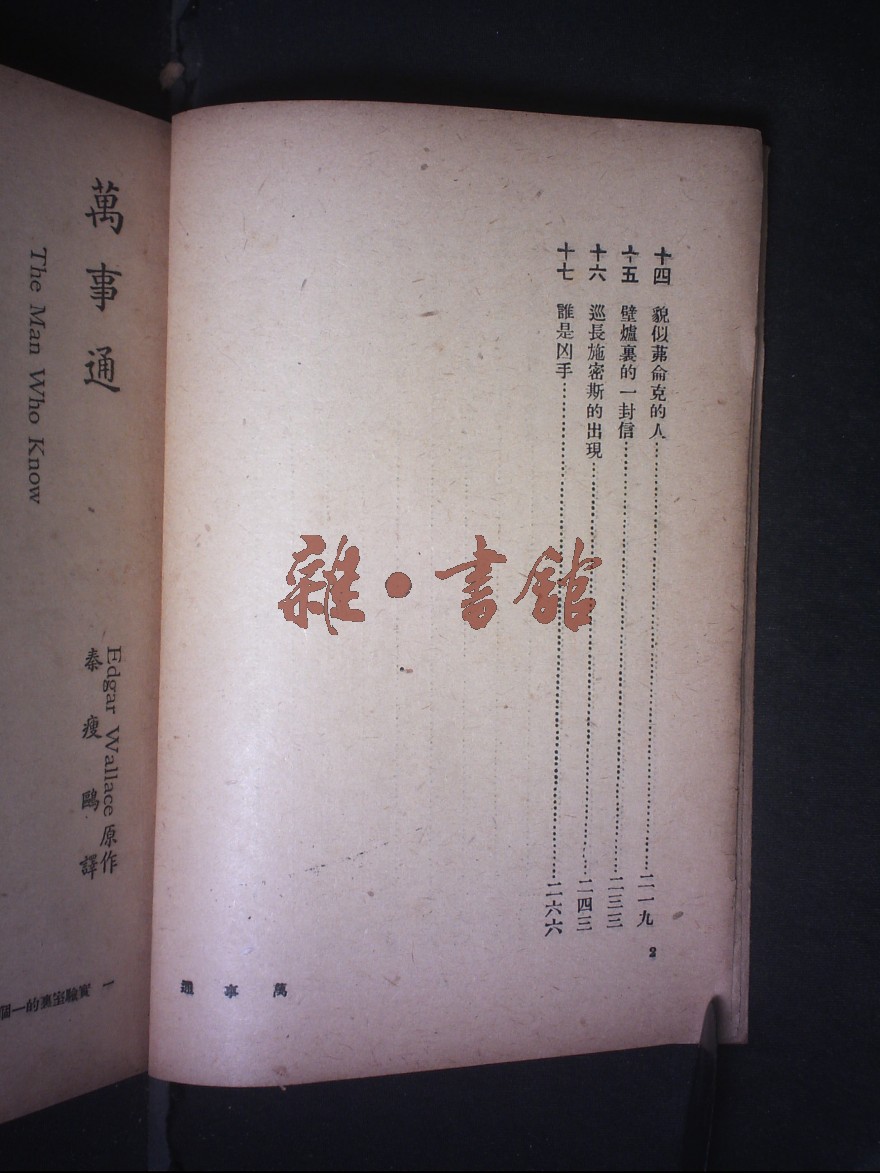 十四 貌似茀侖克的人……二一九
十五 壁爐裏的一封信……二三三
十六 巡長施密斯的出現……二四三
十七 誰是凶手……二六六
2
萬事通
雜•書館
萬事通
The Man Who Know
Edgar Wallace 原作
秦瘦鷗譯
一 實驗室裏的一間